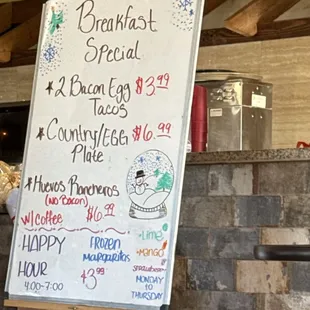 Breakfast
Special
2 Bacon Egg $3.99
Tacos
Country/EGG $6.99
Plate
Huevos Rancheros
(No Bacon)
w/Coffee $6.99
HAPPY
HOUR
4:00-7:00
FROZEN
MARGARITAS
$3.99
-Lime
-Mango
-Strawberry
MONDAY
TO
THURSDAY